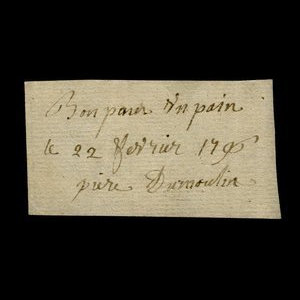 Bon pour un pain
le 22 fevrier 179
piere Dumoulin